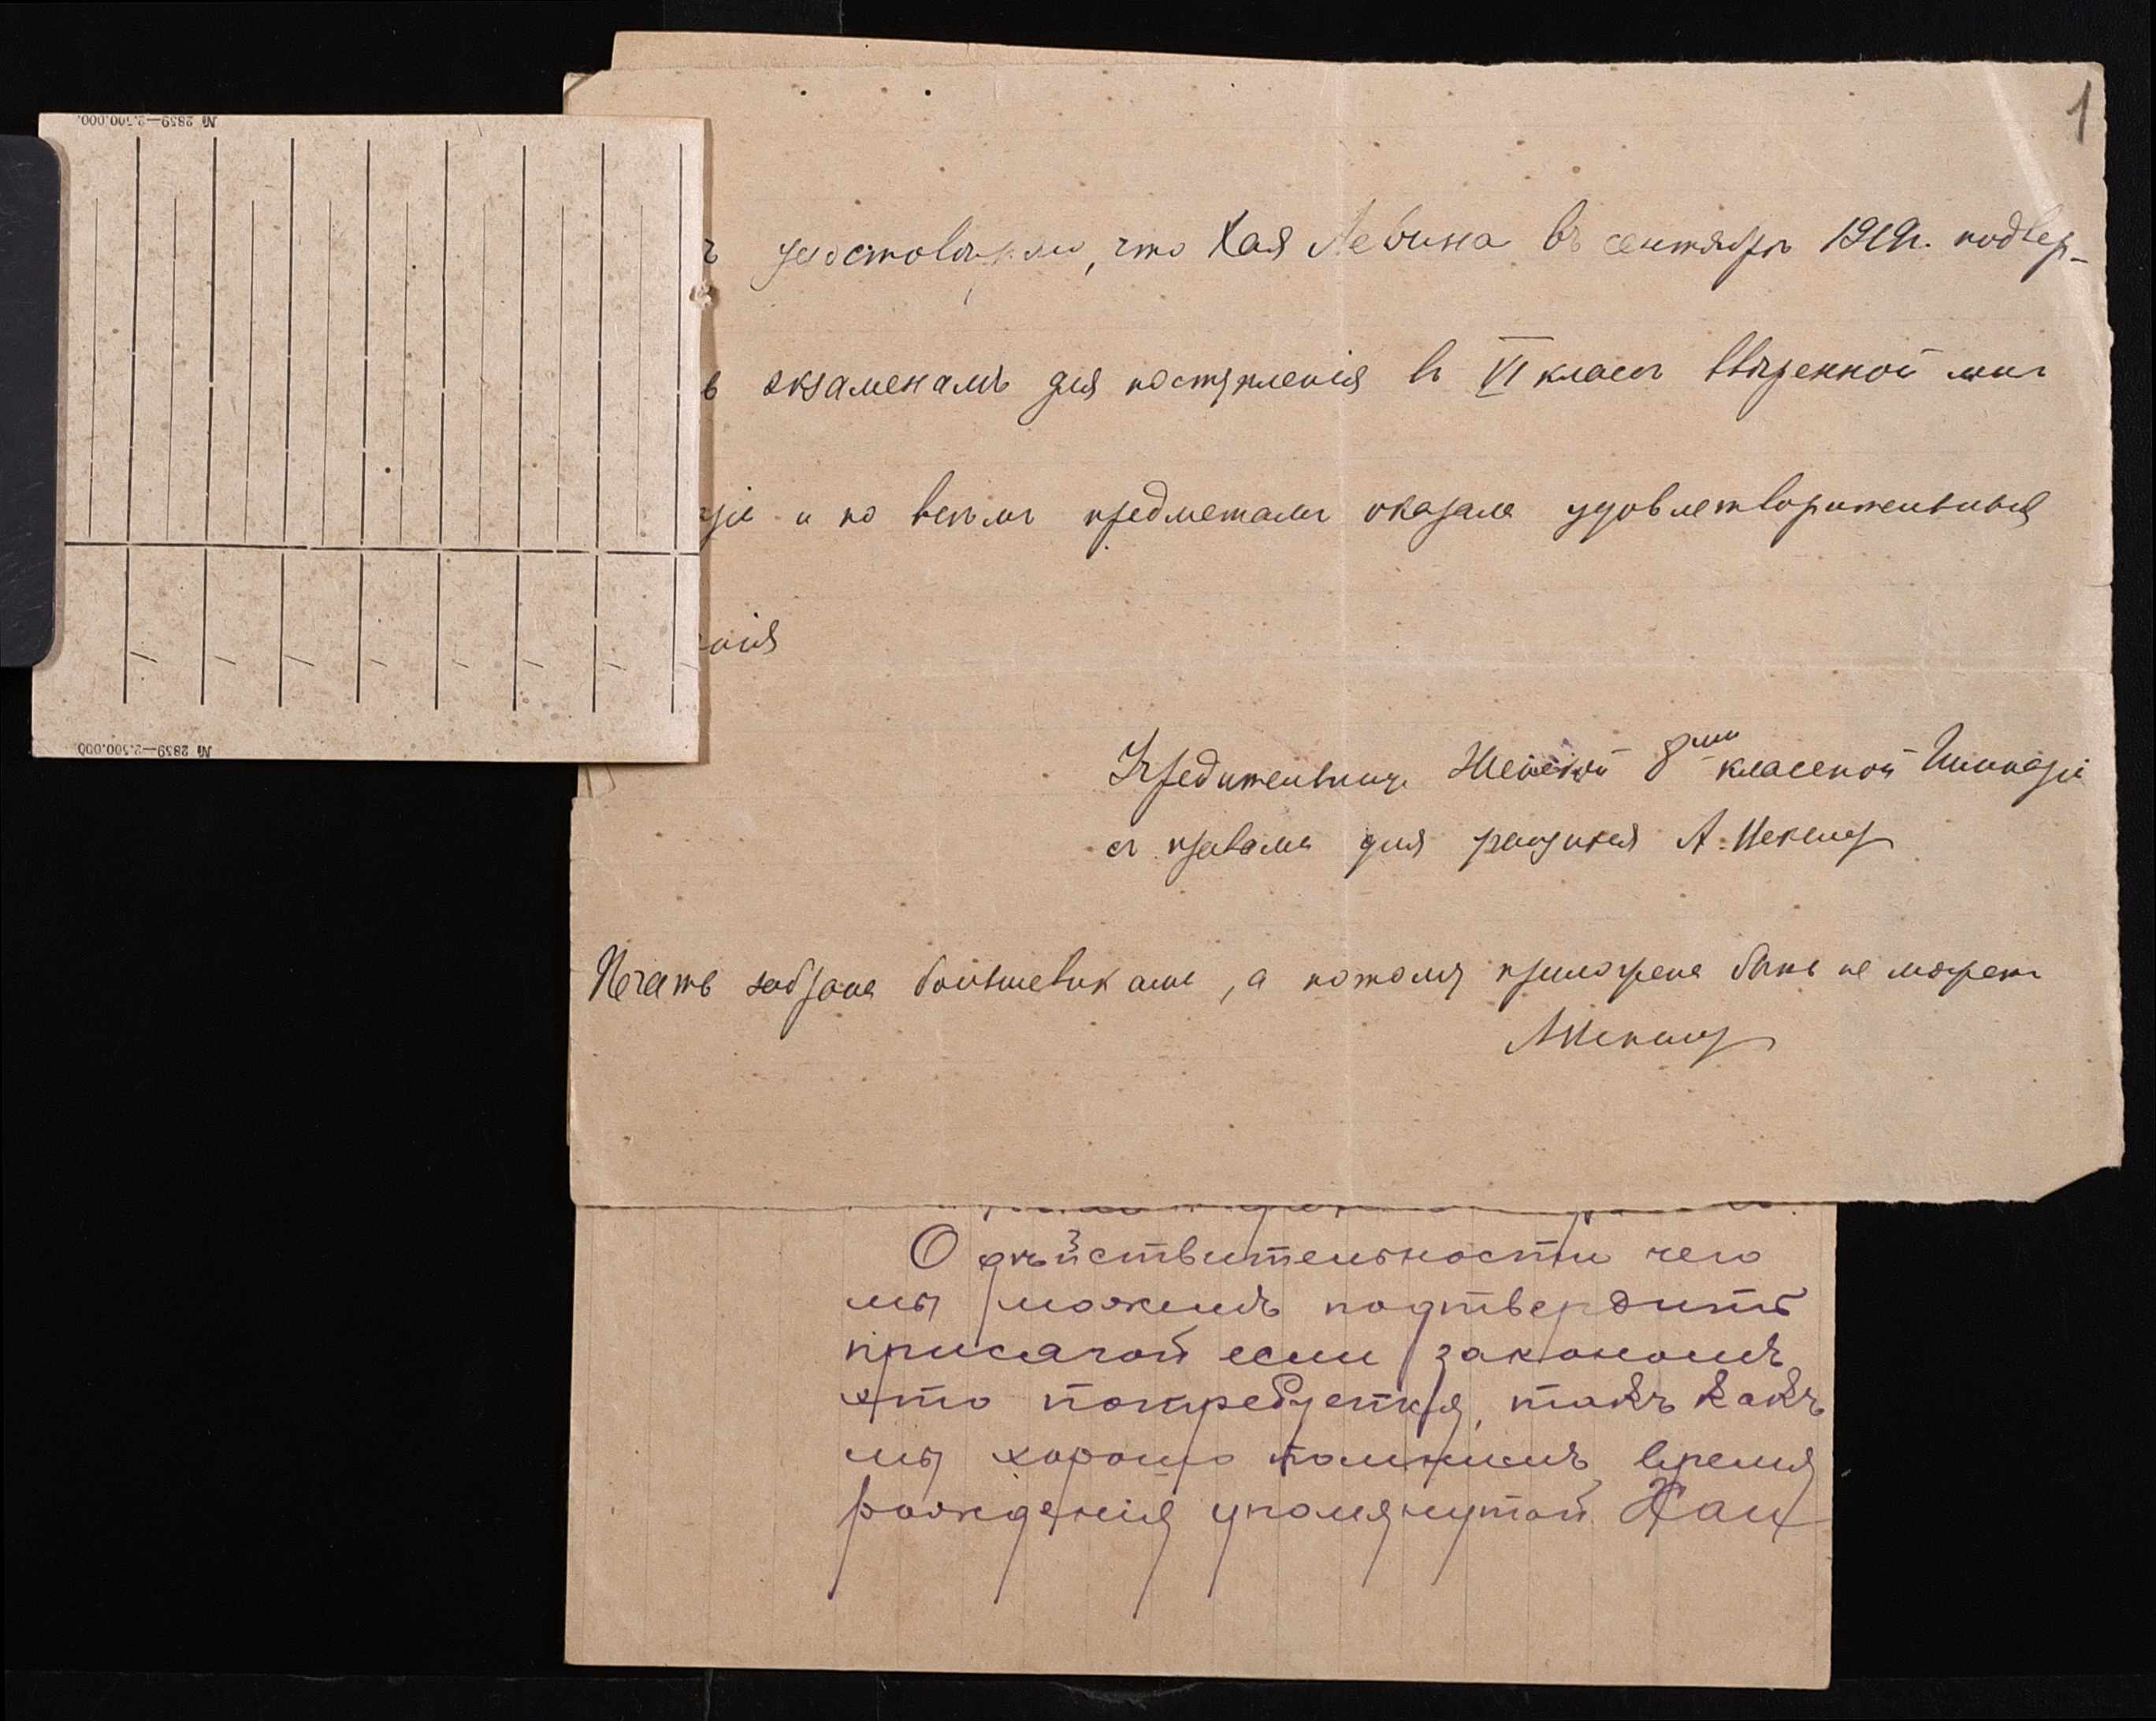 № 2859—2.500.000.
№ 2859—2.500.000.
1
ъ удостовѣряю, что Хая Левина въ сентябрѣ 1919г. подвер-
ъ экзаменамъ для поступленія въ VI классъ ввѣренной мнѣ
зіи и по всѣмъ предметамъ оказала удовлетворительныя
нія
Учредительница Женской 8ми классной Гимназіи
съ правами для учащихся А.
Печать забрана большевиками, а потому приложена быть не можетъ
О дѣйствительности чего
мы можемъ подтвердить
присягой если закономъ
это потребуется, такъ какъ
мы хорошо помнимъ время
рожденія упомянутой Хаи